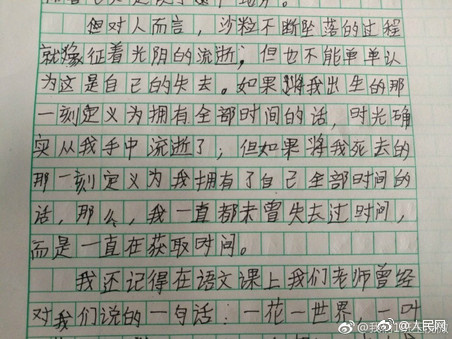 但对人而言，沙粒不断坠落的过程
就像征着光阴的流逝；但也不能单单认
为这是自己的失去。如果将我出生的那
一刻定义为拥有全部时间的话，时光确
实从我手中流逝了；但如果将我死去的
那一刻定义为我拥有了自己全部时间的
话，那么，我一直都未曾失去过时间，
而是一直在获取时间。
我还记得在语文课上我们老师曾经
对我们说的一句话：一花一世界，一叶
@人民网